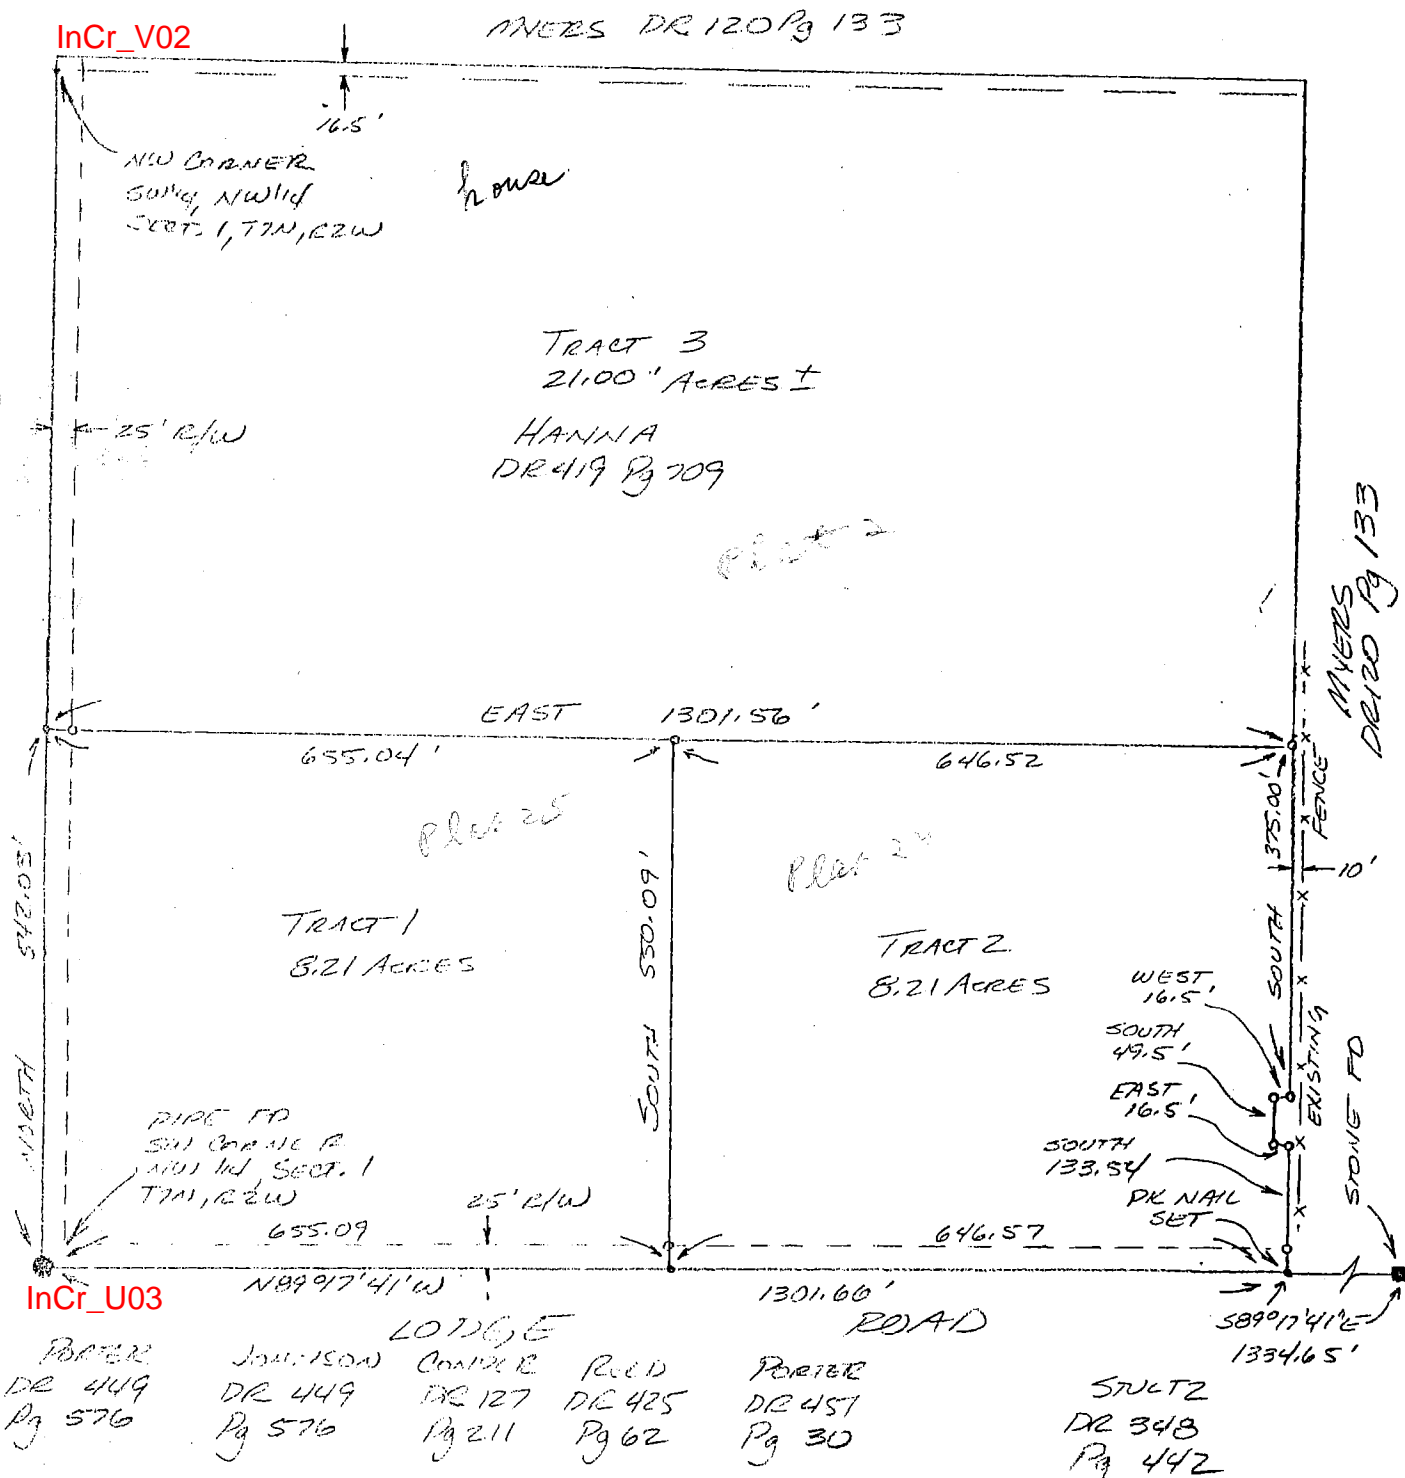 InCr_V02
MYERS DR 120 Pg 133
16.5'
NW CORNER
SW1/4, NW1/4
SECT. 1, T7N, R2W
house
TRACT 3
21.00" ACRES ±
HANNA
DR 419 Pg 709
25' R/W
Plat 2
MYERS
DR120 Pg 133
EAST 1301.56'
655.04'
646.52
Plat 25
Plat 24
375.00'
FENCE
10'
542.03'
NORTH
SOUTH 550.09'
TRACT 1
8.21 ACRES
TRACT 2
8.21 ACRES
SOUTH
EXISTING
WEST
16.5'
SOUTH
49.5'
EAST
16.5'
SOUTH
133.54
PK NAIL
SET
STONE FD
PIPE FD
SW CORNER
NW 1/4, SECT. 1
T7N, R2W
25' R/W
655.09
646.57
InCr_U03
N89°17'41"W
1301.66'
ROAD
S89°17'41"E
1334.65'
PORTER
DR 449
Pg 576
JOHNSON
DR 449
Pg 576
CONDER
DR 127
Pg 211
REED
DR 425
Pg 62
PORTER
DR 451
Pg 30
STULTZ
DR 348
Pg 442